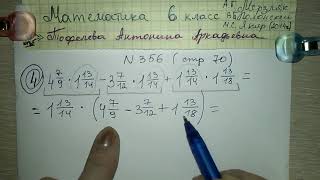 Математика 6 класс
А.Г. Мерзляк
В.Б. Полонский
М.С. Якир (2014г)
Тюфелева Антонина Аркадьевна
N 356 (стр 70)
4) 4 7/9 · 1 13/14 - 3 7/12 · 1 13/14 + 1 13/14 · 1 13/18 =
= 1 13/14 · (4 7/9 - 3 7/12 + 1 13/18) =